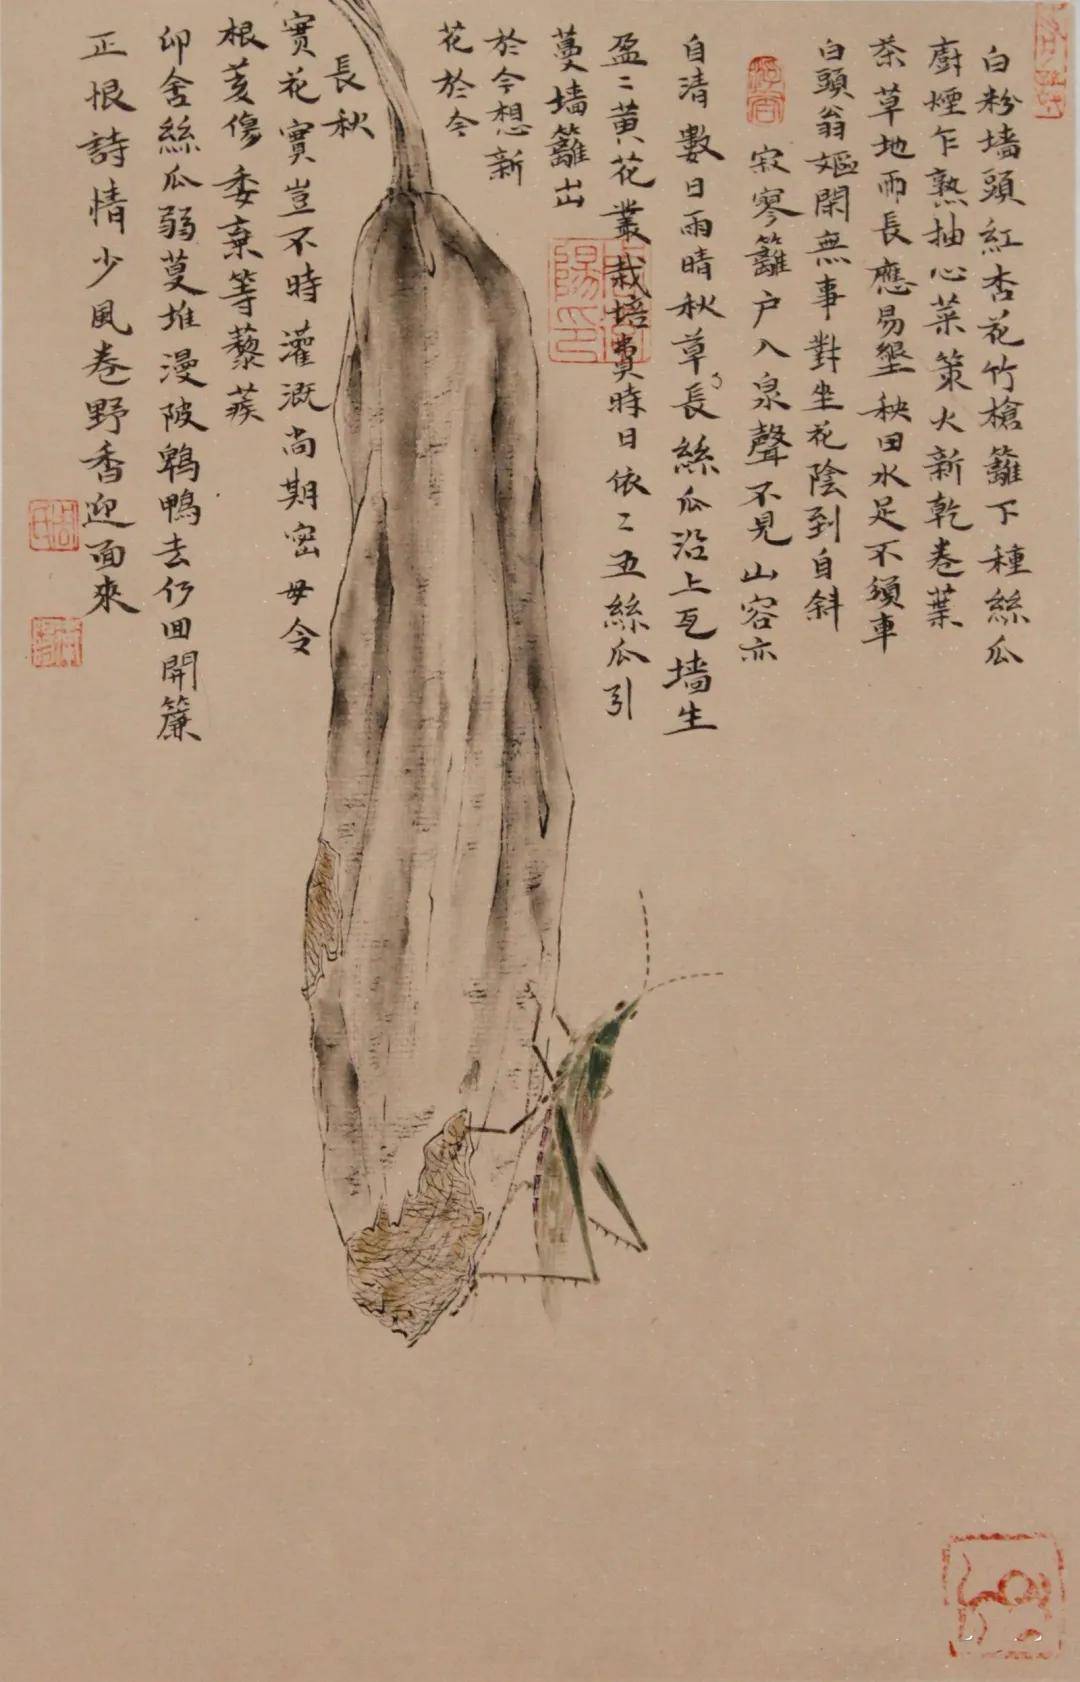 白粉墙頭紅杏花竹槍籬下種絲瓜
廚煙乍熟抽心菜策火新乾卷葉
茶草地雨長應易墾秧田水足不須車
白頭翁嫗閑無事對坐花陰到自斜
寂寥籬户入泉聲不見山容亦
自清數日雨晴秋草長絲瓜沿上瓦墙生
盈二黄花叢栽培費時日依二五絲瓜引
蔓墙籬出
於今想新
花於今
長秋
實花實豈不時灌溉尚期密毋令
根荄傷委棄等藜蒺
卯舍絲瓜弱蔓堆漫陂鵯鴨去仍回開簾
正恨詩情少風卷野香迎面來